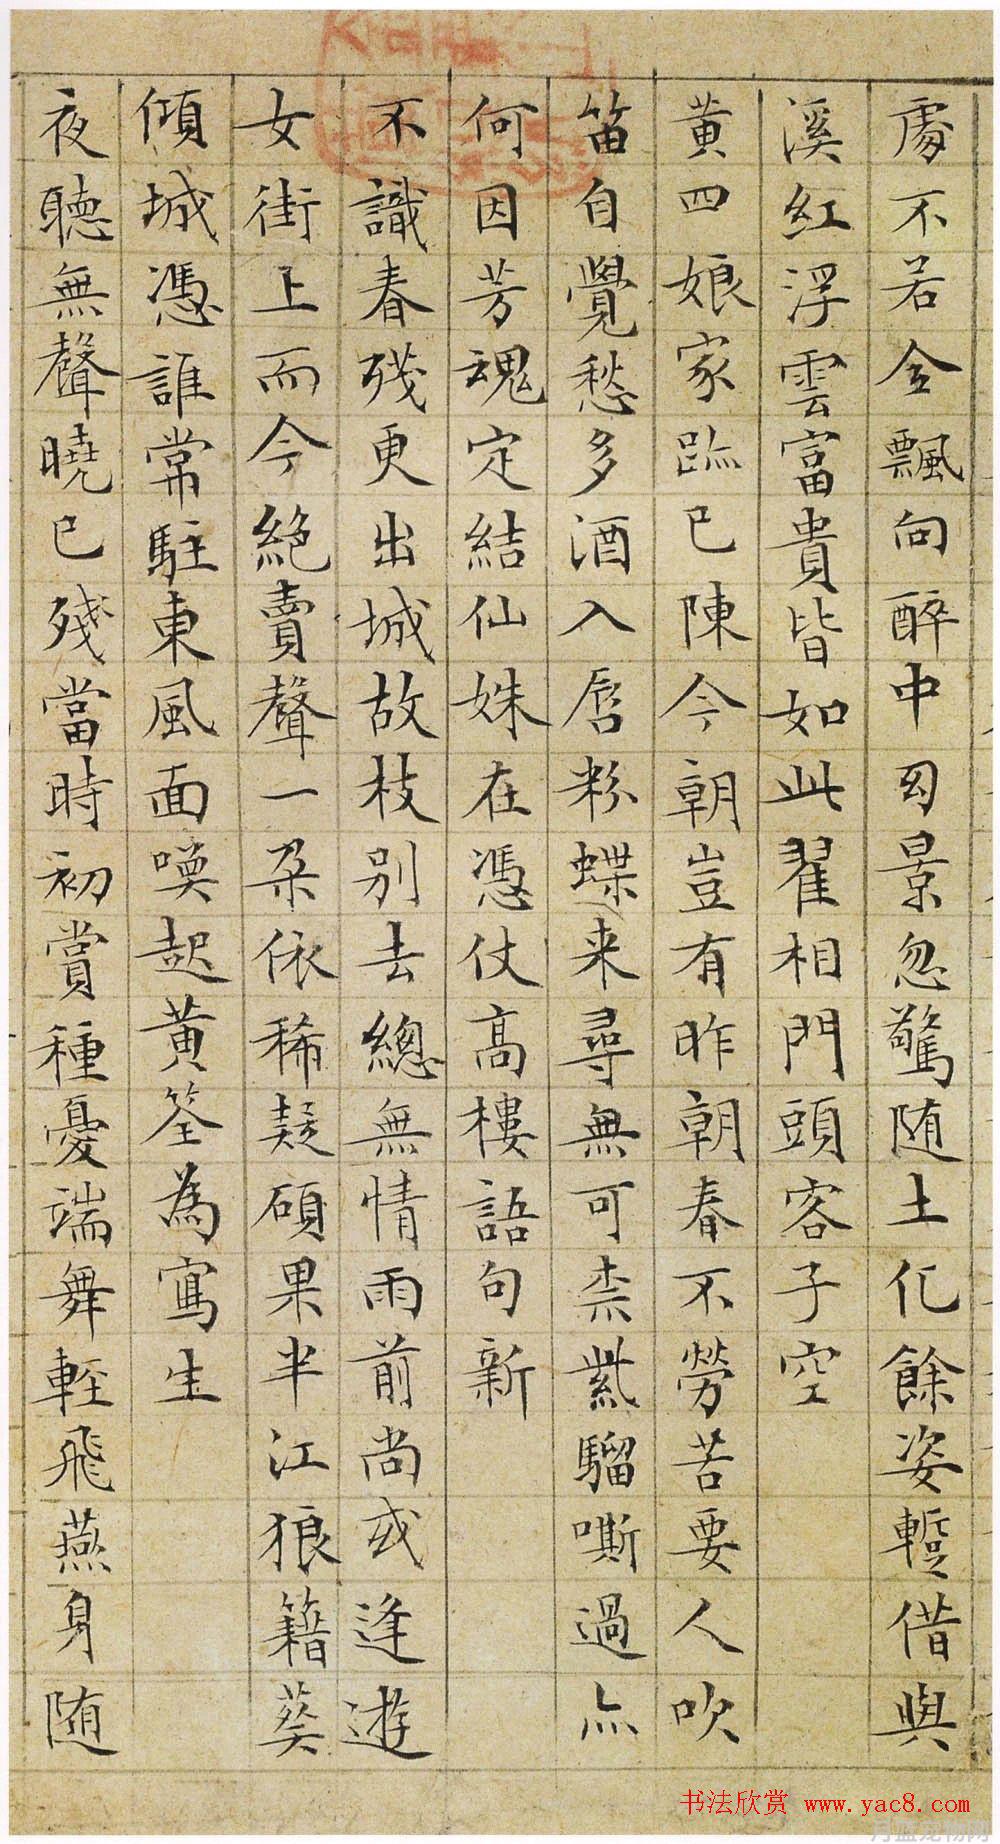 處不若金飄向醉中囙景忽驚随土化餘姿蹔借與
溪紅浮雲富貴皆如此翟相門頭客子空
黄四娘家跡已陳今朝豈有昨朝春不勞苦要人吹
笛自覺愁多酒入唇粉蝶来尋無可柰紫騮嘶過亦
何因芳魂定結仙姝在憑仗高樓語句新
不識春殘更出城故枝别去總無情雨前尚或逢遊
女街上而今絶賣聲一朶依稀疑碩果半江狼籍葵
傾城憑誰常駐東風面喚起黄筌為寫生
夜聽無聲曉已殘當時初賞種憂端舞輕飛燕身随
书法欣赏 www.yac8.com